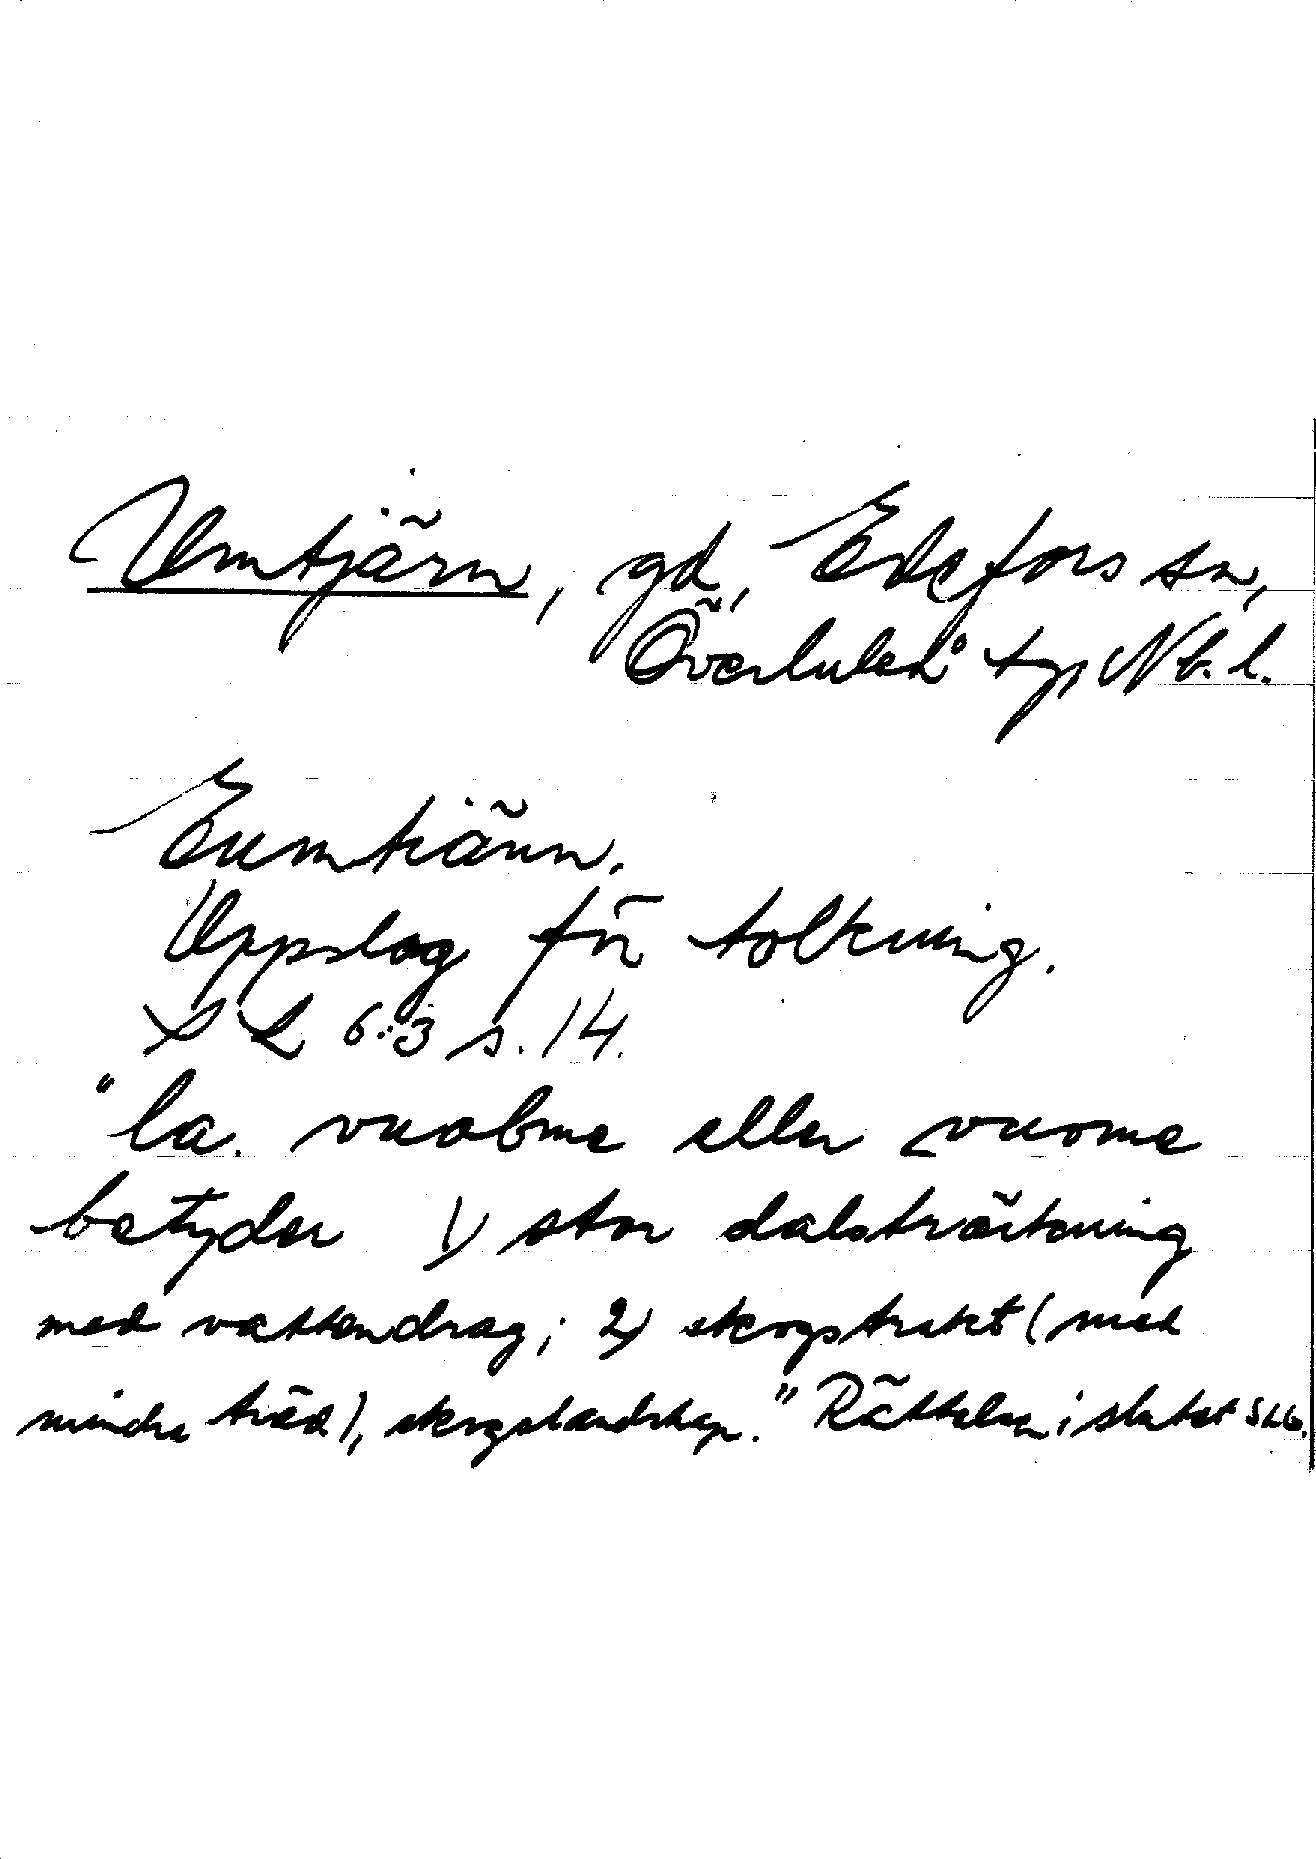 Umtjärn, gd, Edefors sn,
Överluleå tg, Nb. l.
Eumtiärn.
Uppslag för tolkning.
SL 6:3 s. 14.
"la. vuobme eller vuome
betyder 1) stor dalsträckning
med vattendrag; 2) skogstrakt (med
mindre träd), skogslandskap." Rättelser i slutet SL6.